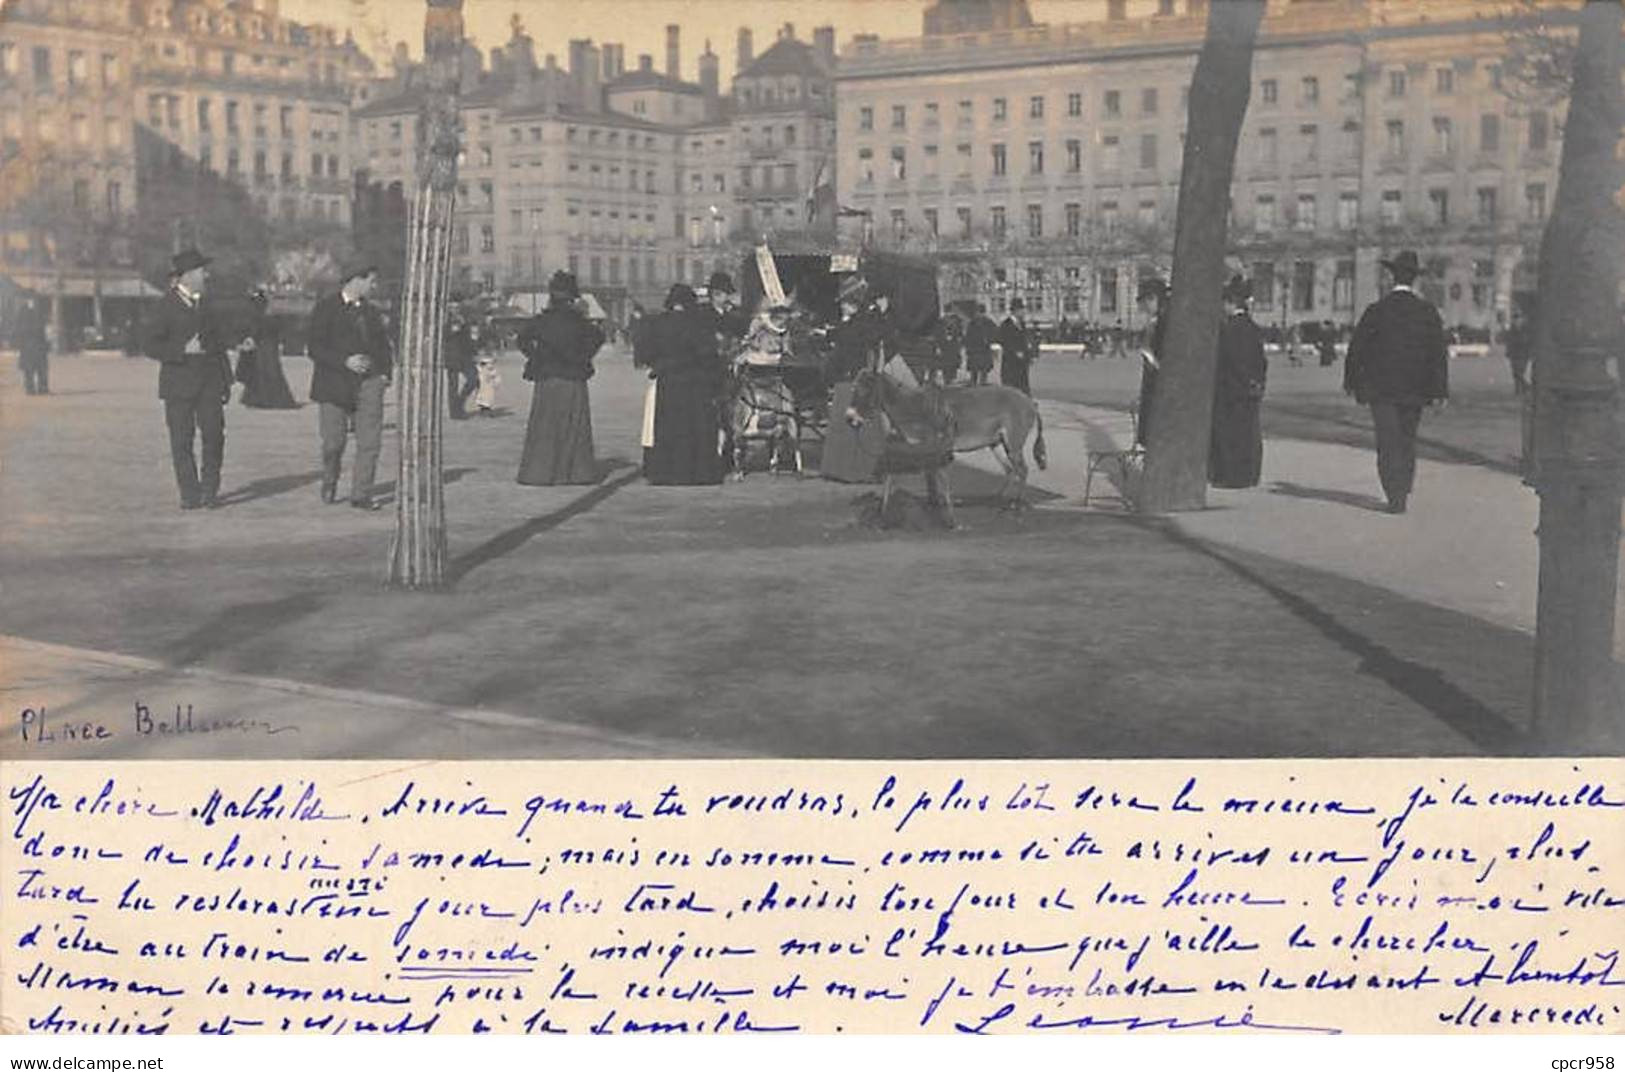 PLace Bellecour
Ma chère Mathilde, Arrive quand tu voudras, le plus tôt sera le mieux, je te conseille
donc de choisir samedi, mais en somme, comme si tu arrives un jour, plus
aussi
tard tu resteras un jour plus tard, choisis ton jour et ton heure. Ecris moi vite
d'être au train de samedi, indique moi l'heure que j'aille te chercher.
Maman te remercie pour la recette et moi je t'embrasse en te disant A bientôt
Amitiés et respects à la famille. Léonie Mercredi
delcampe.net
cpcr958